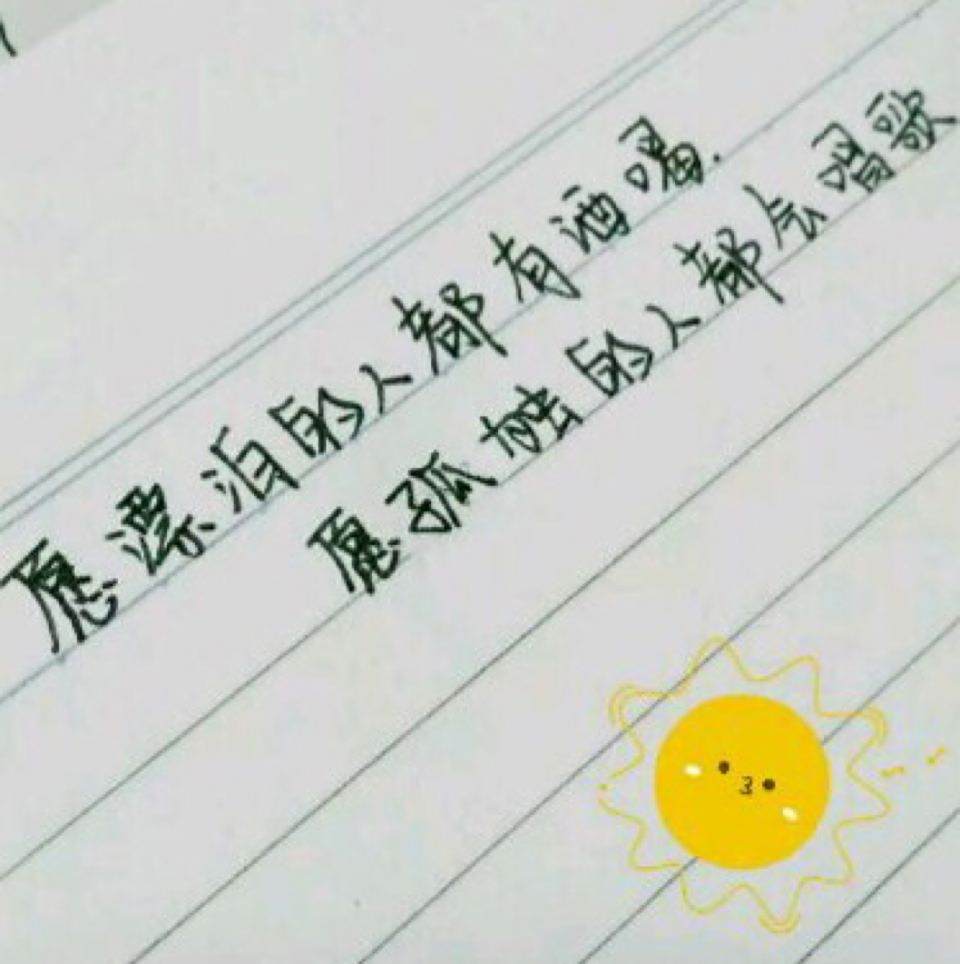 愿漂泊的人都有酒喝.
愿孤独的人都会唱歌